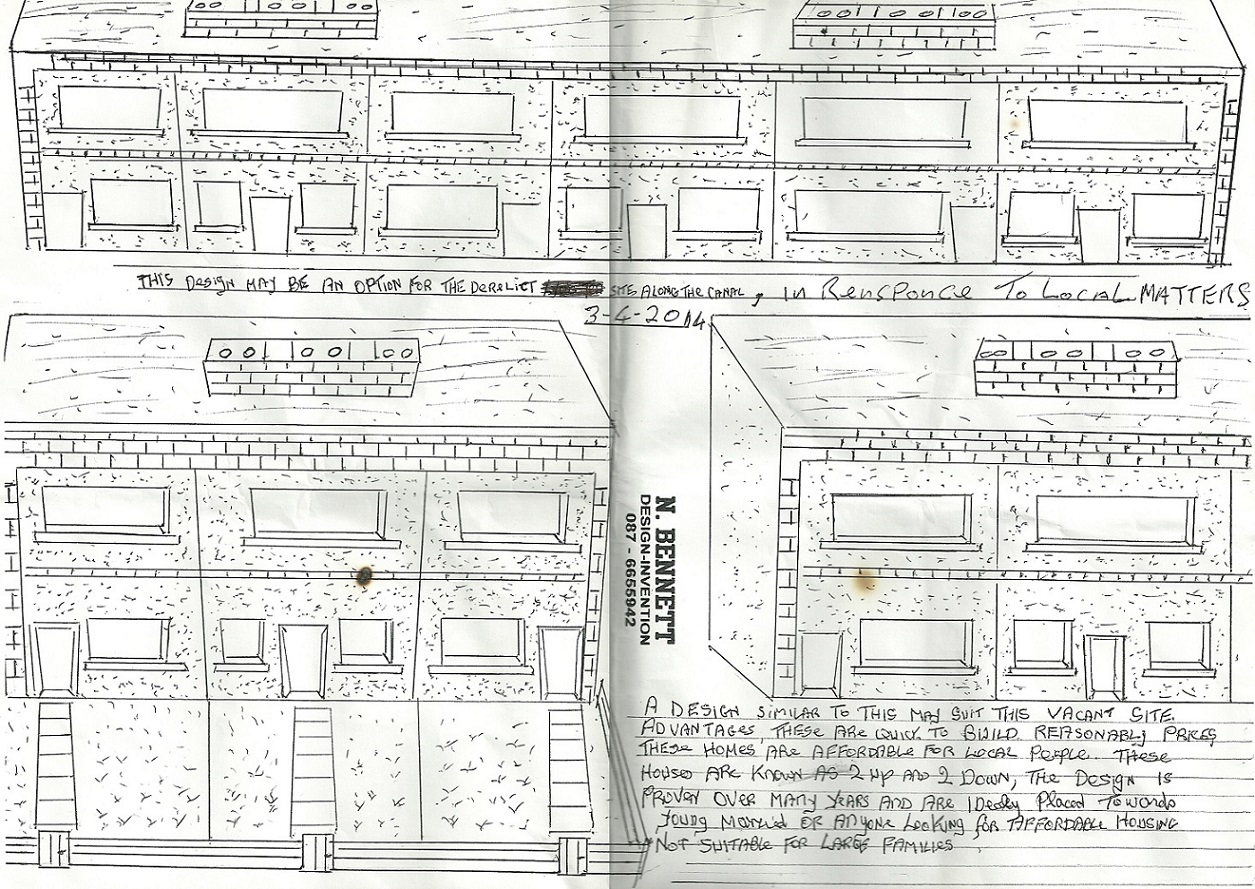 THIS DESIGN MAY BE AN OPTION FOR THE DERELICT SITE ALONG THE CANAL, IN RENSPONCE TO LOCAL MATTERS
3-4-2014
N. BENNETT
DESIGN-INVENTION
087 - 6655942
A DESIGN SIMILAR TO THIS MAY SUIT THIS VACANT SITE.
ADVANTAGES, THESE ARE QUICK TO BUILD. REASONABLY PRICES
THESE HOMES ARE AFFORDABLE FOR LOCAL PEOPLE. THESE
HOUSES ARE KNOWN AS 2 UP AND 2 DOWN, THE DESIGN IS
PROVEN OVER MANY YEARS AND ARE IDEALY PLACED TOWARDS
YOUNG MARRIED OR ANYONE LOOKING FOR AFFORDABLE HOUSING
NOT SUITABLE FOR LARGE FAMILIES.